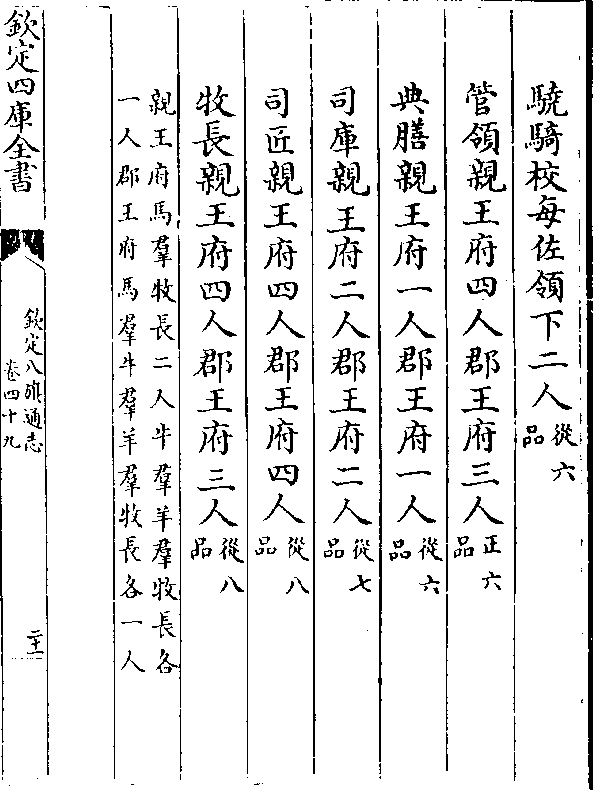 驍騎校每佐領下二人從六品
管領親王府四人郡王府三人正六品
典膳親王府一人郡王府一人從六品
司庫親王府二人郡王府二人從七品
司匠親王府四人郡王府四人從八品
牧長親王府四人郡王府三人從八品
親王府馬羣牧長二人牛羣羊羣牧長各
一人郡王府馬羣牛羣羊羣牧長各一人
欽定四庫全書
欽定八旗通志
卷四十九
二十一